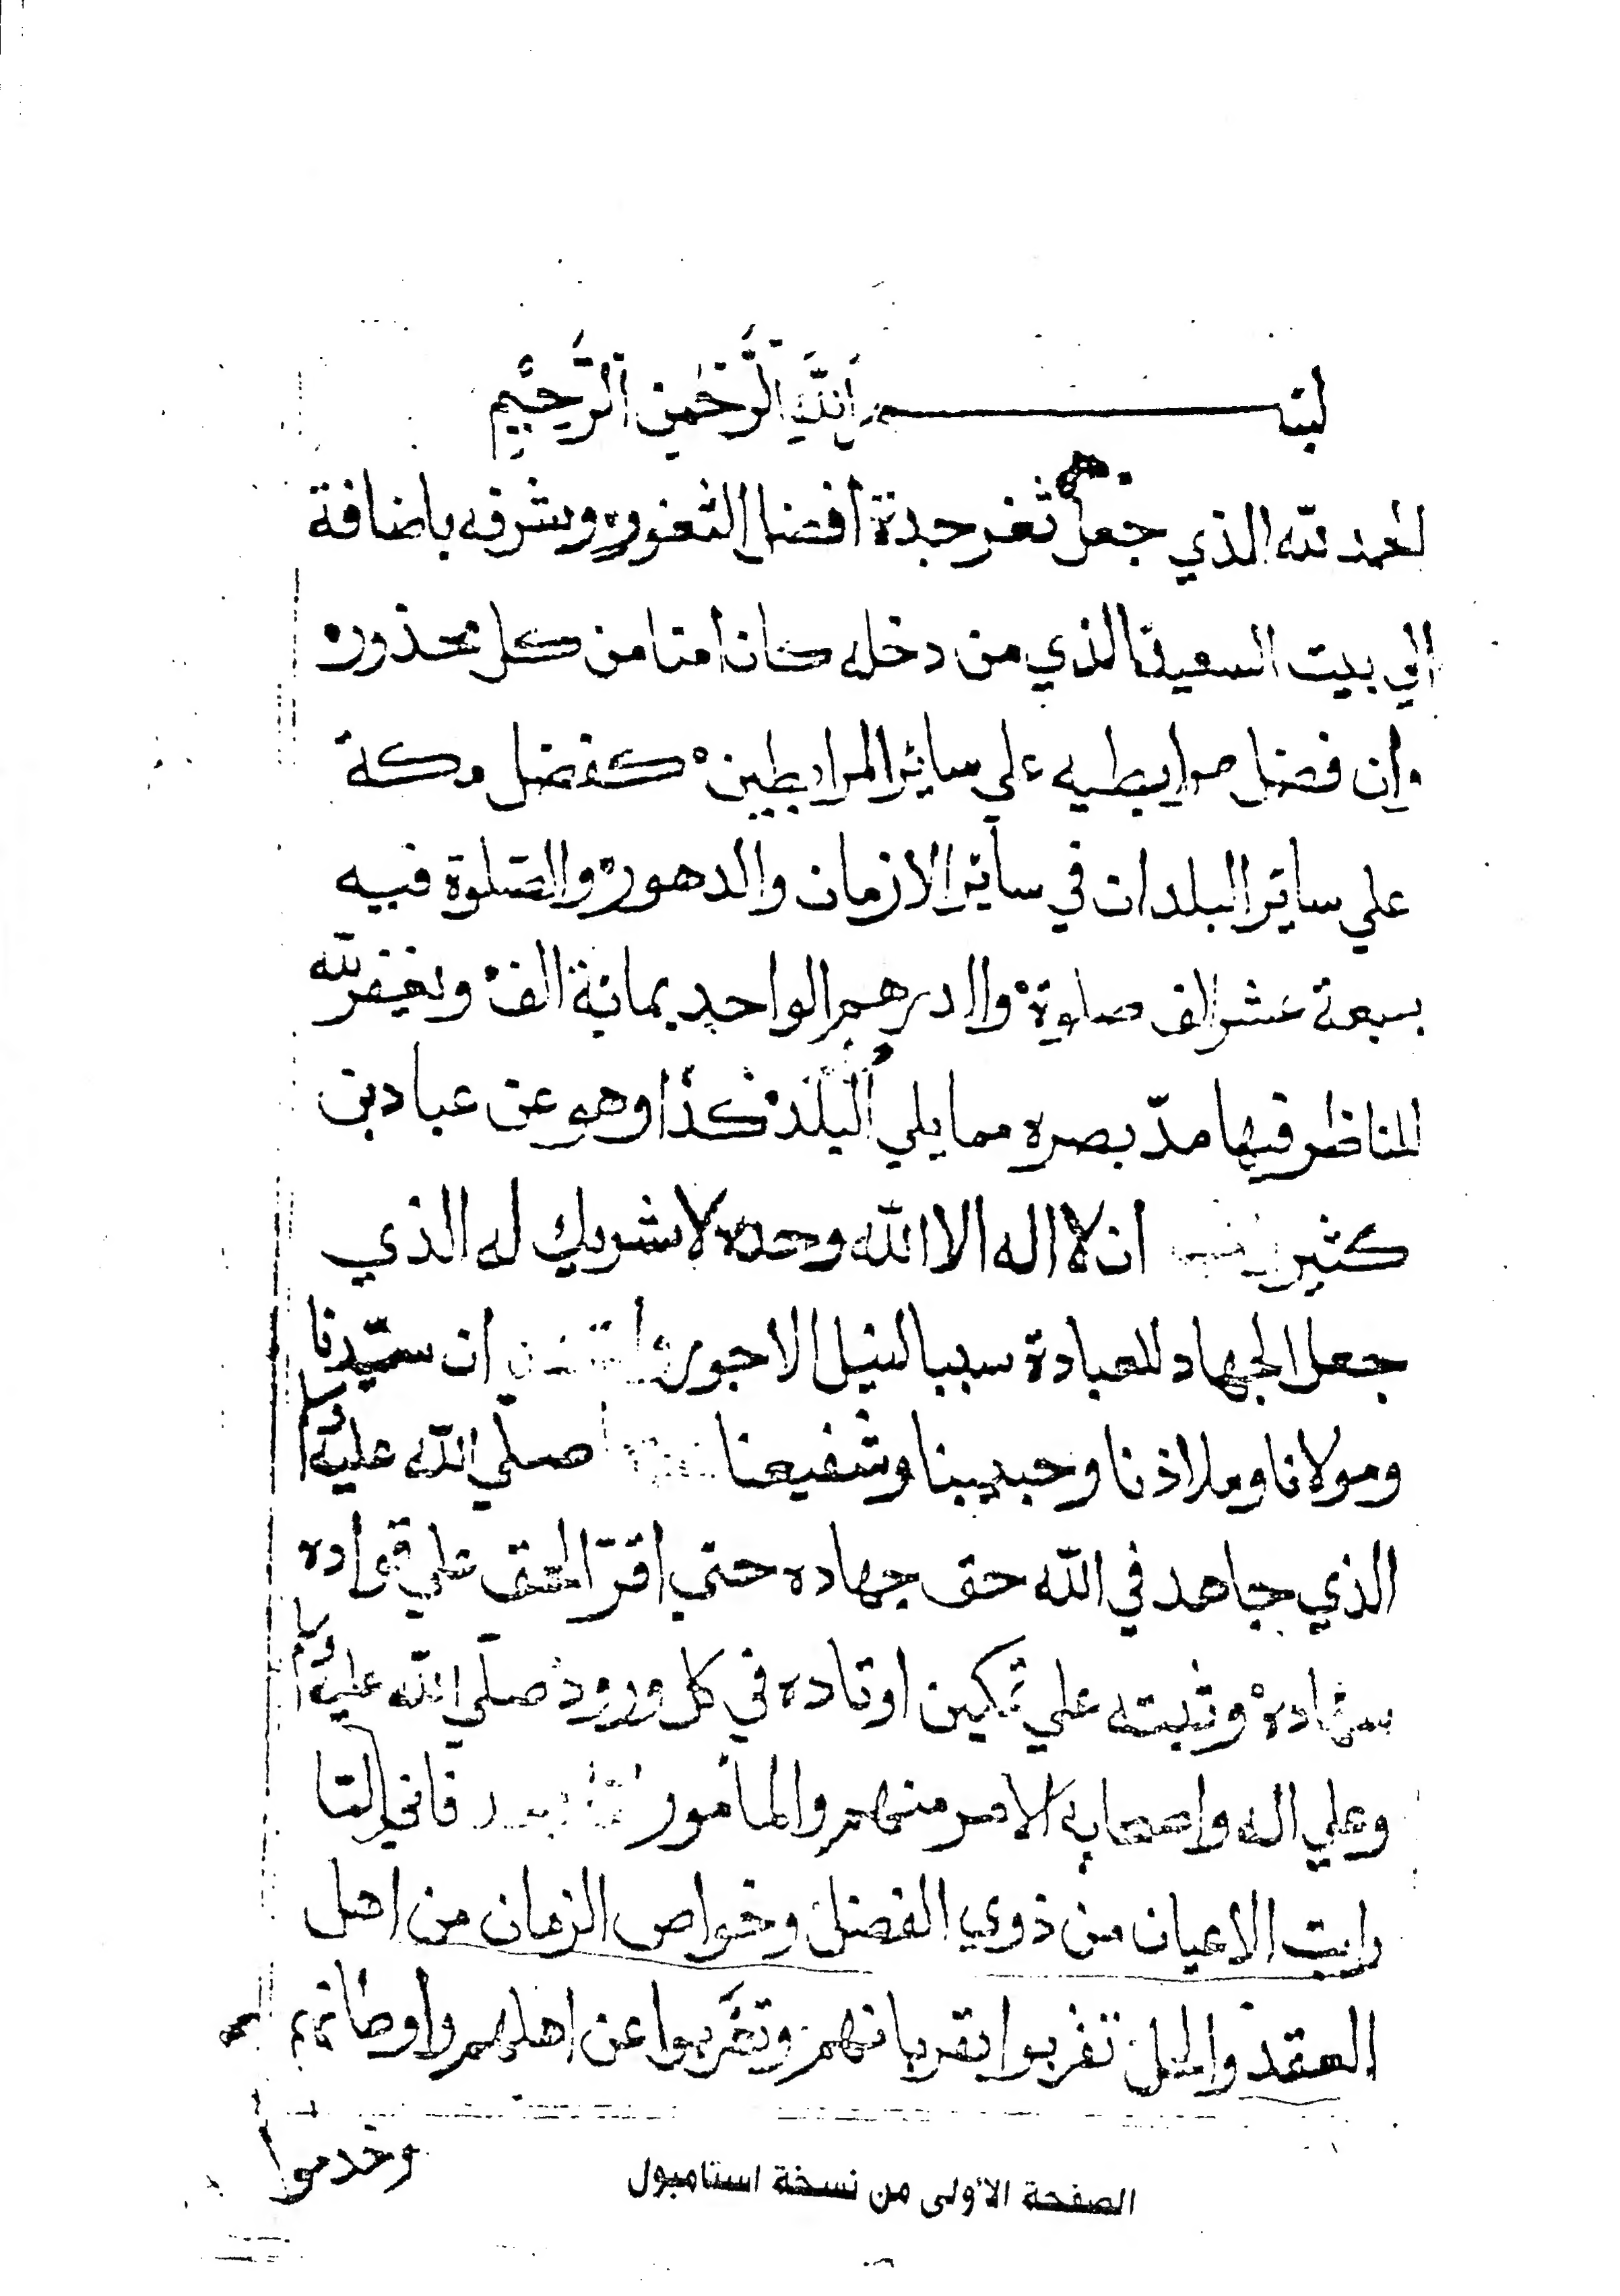 بسم الله الرحمن الرحيم
الحمد لله الذي جعل ثغر جدة افضل الثغور وشرفه باضافة
الي بيت السعيد الذي من دخله كان امنا من كل محذور
وان فضل مرابطيه علي سائر المرابطين كفضل مكة
علي سائر البلدان في سائر الازمان والدهور والصلوة فيه
بسبعة عشر الف صلوة والدرهم الواحد بمائة الف ويغفر الله
للناظر فيها مدّ بصره مما يلي البلد كذا وهو عن عباد بن
كثير ان لا اله الا الله وحده لا شريك له الذي
جعل الجهاد للعبادة سببا لنيل الاجور ان سيّدنا
ومولانا وملاذنا وحبيبنا وشفيعنا صلي الله عليه وسلم
الذي جاهد في الله حق جهاده حتي اقرّ الحق علي
وثبته علي تمكين اوتاده في كل ورود صلي الله عليه وسلم
وعلي اله واصحابه الامر منهم والمأمور فاني لما
رايت الاعيان من ذوي الفضل وخواص الزمان من اهل
العقد والحل تقربوا بقرباتهم وتغربوا عن اهلهم واوطانهم
وخدموا
الصفحة الأولى من نسخة استامبول